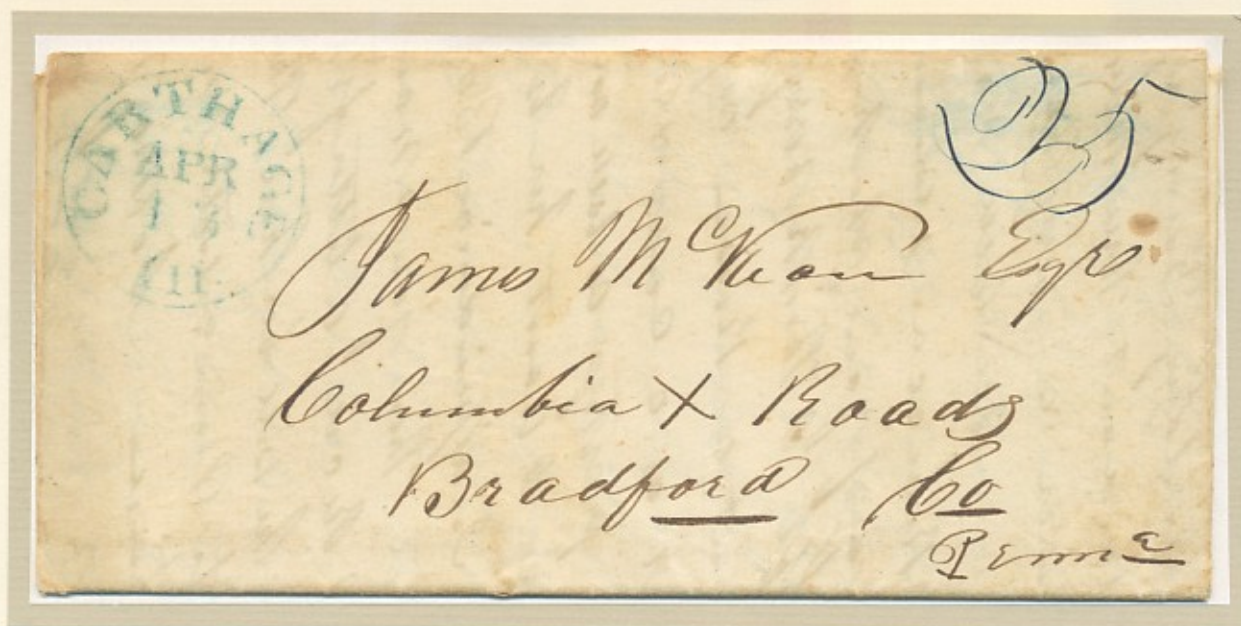 CARTHAGE
APR
Ill.
25
James McKean Esqr
Columbia X Roads
Bradford Co
Penna